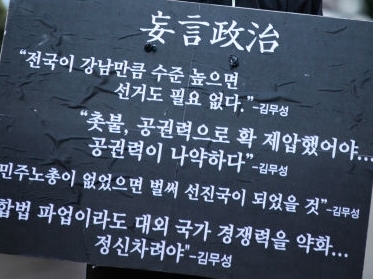 妄言政治
“전국이 강남만큼 수준 높으면
선거도 필요 없다.”-김무성
“촛불, 공권력으로 확 제압했어야...
공권력이 나약하다”-김무성
민주노총이 없었으면 벌써 선진국이 되었을 것”-김무성
합법 파업이라도 대외 국가 경쟁력을 약화...
정신차려야"-김무성